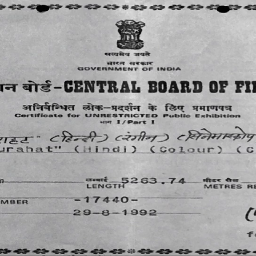 सत्यमेव जयते
भारत सरकार
GOVERNMENT OF INDIA
बोर्ड-CENTRAL BOARD OF
अनिर्बन्धित लोक-प्रदर्शन के लिए प्रमाणपत्र
Certificate for UNRESTRICTED Public Exhibition
भाग I/Part I
(हिन्दी) (रंगीन)
(Hindi) (Colour)
लम्बाई
LENGTH 5263.74 METRES
-17440-
29-8-1992